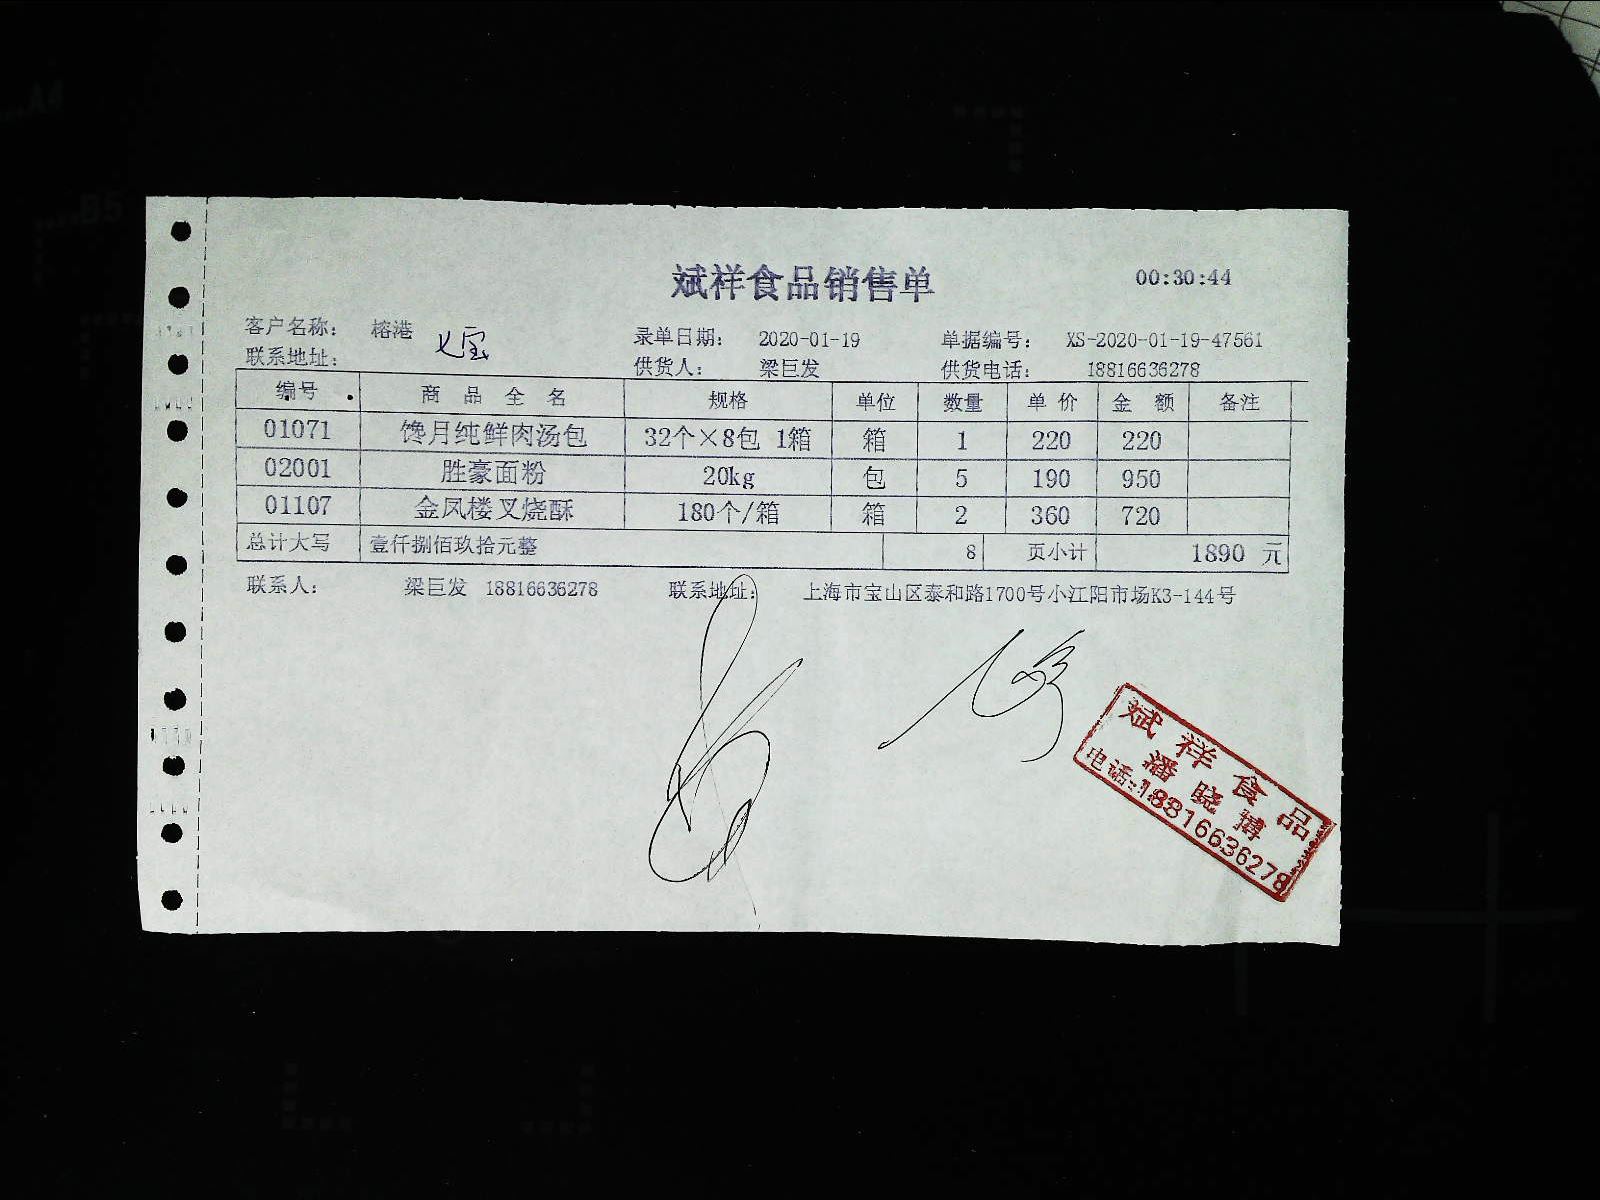 斌祥食品销售单 00:30:44
客户名称： 榕港 七宝 录单日期： 2020-01-19 单据编号： XS-2020-01-19-47561
联系地址： 供货人： 梁巨发 供货电话： 18816636278
编号 商品全名 规格 单位 数量 单价 金额 备注
01071 馋月纯鲜肉汤包 32个×8包 1箱 箱 1 220 220
02001 胜豪面粉 20kg 包 5 190 950
01107 金凤楼叉烧酥 180个/箱 箱 2 360 720
总计大写 壹仟捌佰玖拾元整 8 页小计 1890 元
联系人： 梁巨发 18816636278 联系地址： 上海市宝山区泰和路1700号小江阳市场K3-144号
斌祥食品
潘晓搏
电话:18816636278
A4
B5